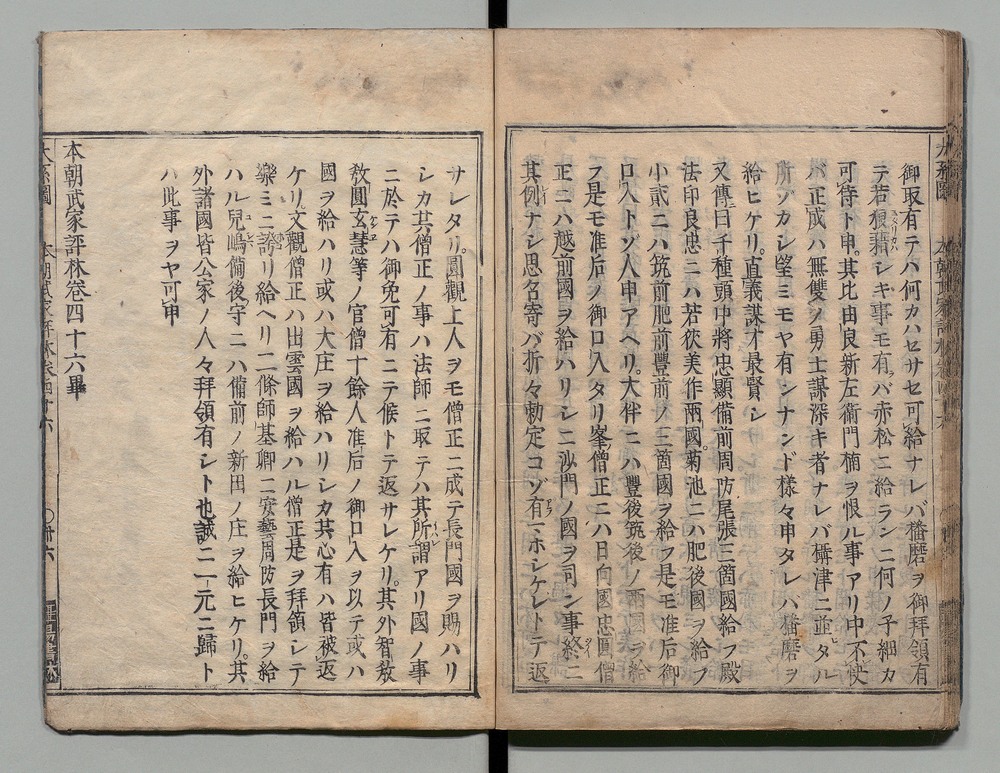 御取有テハ何カハセサセ可給ナレバ播磨ヲ御拝領有
テ若狼藉シキ事モ有ラバ赤松ニ給ランニ何ノ子細カ
可侍ト申。其比由良新左衞門楠ヲ恨ル事アリ中不快
バ正成ハ無雙ノ勇士謀深キ者ナレバ構津ニ並タル
所ゾカシ望ミモヤ有ンナンド樣々申タレハ播磨ヲ
給ヒケリ。直義謀才最賢シ
又傳曰千種頭中將忠顯備前周防尾張三箇國給フ殿
法印良忠ニハ若狹美作兩國。菊池ニハ肥後國ヲ給フ
小貳ニハ筑前肥前豐前ノ三箇國ヲ給フ是モ准后御
口入トゾ人申アヘリ。大伴ニハ豐後筑後ノ兩國ヲ給
フ是モ准后ノ御口入タリ峯僧正ニハ日向國忠圓僧
正ニハ越前國ヲ給ハリシニ沙門ノ國ヲ司ン事終ニ
其例ナシ思名寄バ折々勅定コソ有マホシケレトテ返
サレタリ。圓觀上人ヲモ僧正ニ成テ長門國ヲ賜ハリ
シカ其僧正ノ事ハ法師ニ取テハ其所謂アリ國ノ事
ニ於テハ御免可有ニテ候トテ返サレケリ。其外智教
教圓玄慧等ノ官僧十餘人准后ノ御口入ヲ以テ或ハ
國ヲ給ハリ或ハ大庄ヲ給ハリシカ其心有ハ皆被返
ケリ文觀僧正ハ出雲國ヲ給ハル僧正是ヲ拜領シテ
樂ミニ誇リ給ヘリ二條師基卿ニ安藝周防長門ヲ給
ハル兒嶋備後守ニハ備前ノ新田ノ庄ヲ給ヒケリ。其
外諸國皆公家ノ人々拜領有シト也誠ニ一元ニ歸ト
ハ此事ヲヤ可申
本朝武家評林卷四十六畢
大系圖 本朝武家評林卷四十六 〇卅六